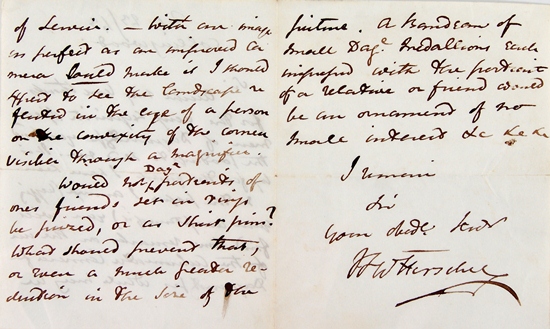 of Lewin – with an image
as perfect as an improved Ca
mera could make it I should
expect to see the Landscape re
flected in the Eye of a person
on the convexity of the cornea
visible through a magnifier.
Dagᵉ
Would not portraits of
ones friends set in rings
be prized, or as Shirt pins?
What should prevent that,
or even a much greater re-
duction in the size of the
picture. A Bandeau of
Small Dagᵉ Medallions each
impressed with the portrait
of a relative or friend would
be an ornament of no
small interest &c &c &c
I remain
Sir
Your obedᵗ Servᵗ
JFWHerschel